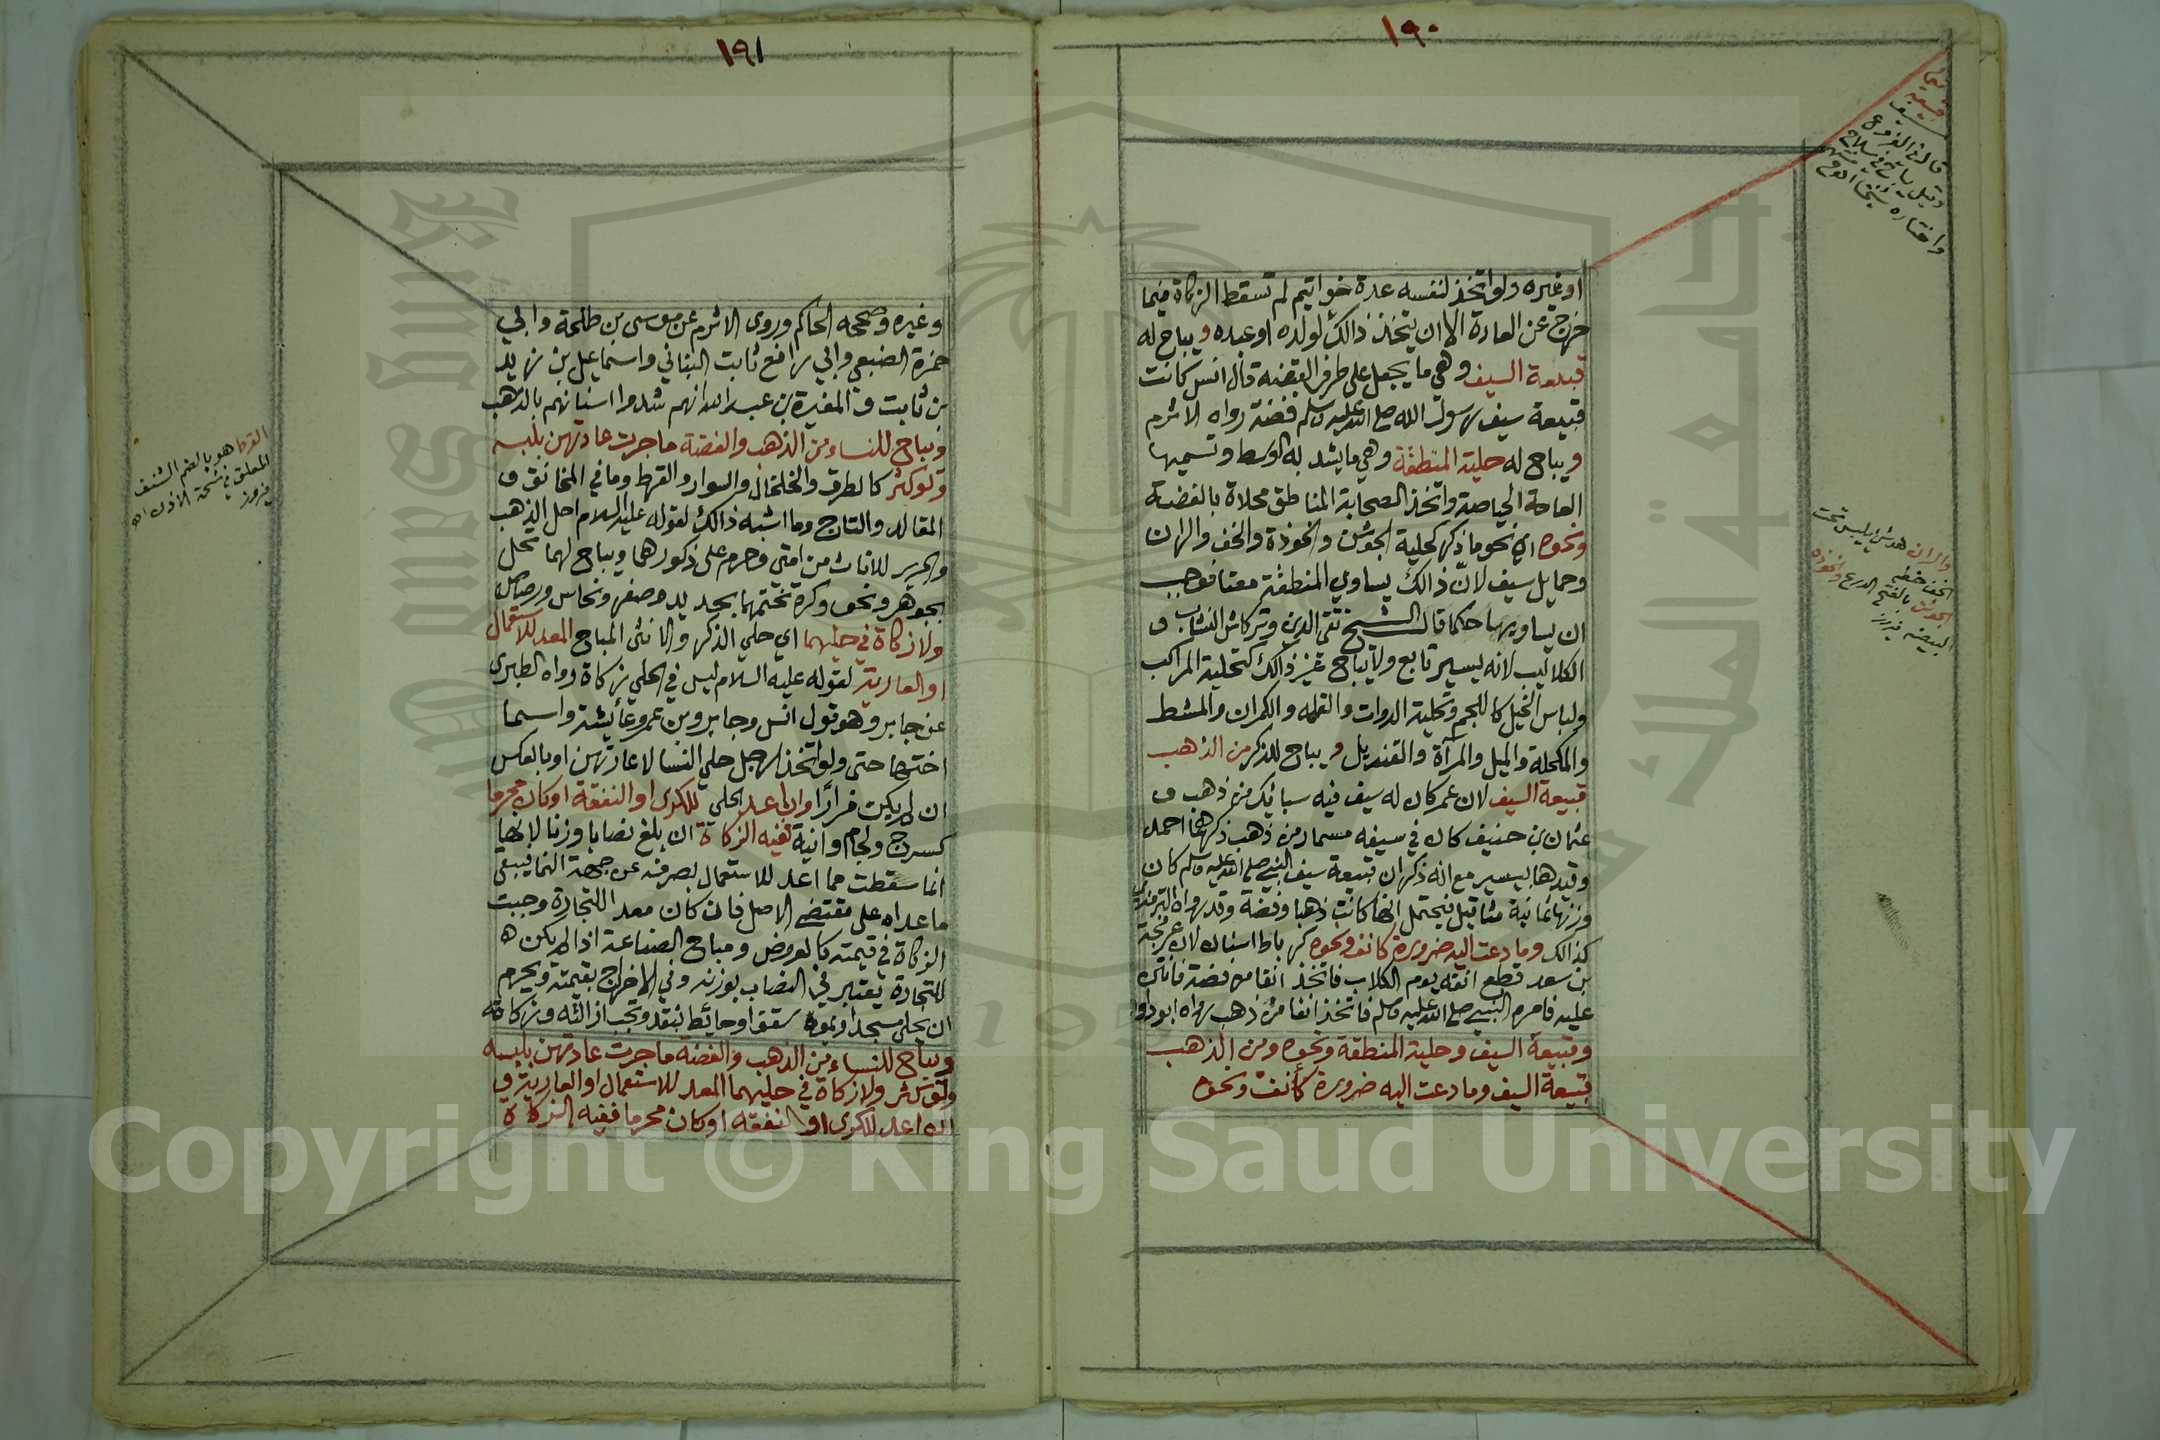 ١٩٠
قوله
قبيعة
السيف
قال في الفروع
وقيل يباح في سلاح
واختاره شيخنا
او غيره ولو اتخذ لنفسه عدة خواتيم لم تسقط الزكاة فيما
خرج عن العادة الا ان يتخذ ذالك لولده او عبده ويباح له
قبيعة السيف وهي ما يجعل على طرف القبضه قال انس كانت
قبيعة سيف رسول الله صلى الله عليه وسلم فضة رواه الاثرم
ويباح له حلية المنطقة وهي ما يشد به الوسط وتسميها
العامة الحياصة واتخذ الصحابة المناطق محلاة بالفضة
ونحوه اي نحو ما ذكر كحلية الجوشن والخوذة والخف والران
وحمايل سيف لان ذالك يساوي المنطقة معنا فوجب
ان يساويها حكما قال الشيخ تقي الدين وتركاش النشاب و
الكلاليب لانه يسير تابع ولا يباح غير ذالك كتحلية المراكب
ولباس الخيل كاللجم وتحلية الدوات والقلمه والكمران والمشط
والمكحلة والميل والمرآة والقنديل ويباح للذكر من الذهب
قبيعة السيف لان عمر كان له سيف فيه سبائك من ذهب و
عثمان بن حنيف كان في سيفه مسمار من ذهب ذكرهما احمد
وقيدها بيسير مع انه ذكر ان قبيعة سيف النبي صلى الله عليه وسلم كان
وزنها ثمانية مثاقيل فيحتمل انها كانت ذهبا وفضة وقد رواه الترمذي
كذالك وما دعت اليه ضرورة كانف ونحوه كرباط اسنان لان عرفجة
بن سعد قطع انفه يوم الكلاب فاتخذ انفا من فضة فانتن
عليه فامره النبي صلى الله عليه وسلم فاتخذ انفا من ذهب رواه ابو داود
وقبيعة السيف وحلية المنطقة ونحوه ومن الذهب
قبيعة السيف وما دعت اليه ضرورة كأنف ونحوه
والران هو شي يلبس تحت
الخف خطه
الجوشن بالفتح الدرع والخوذه
البيضه فيروز
١٩١
وغيره وصححه الحاكم وروى الاثرم عن موسى بن طلحة وابي
حمزة الضبعي وابي رافع ثابت البناني واسماعيل بن زيد
بن ثابت والمغيرة بن عبد الله انهم شدوا اسنانهم بالذهب
ويباح للنساء من الذهب والفضة ما جرت عادتهن بلبسه
ولو كثر كالطوق والخلخال والسوار والقرط وما في المخانق و
المقالد والتاج وما اشبه ذالك لقوله عليه السلام احل الذهب
والحرير للاناث من امتي وحرم على ذكورهما ويباح لهما تحل
بجوهر ونحوه وكره تختمهما بحديد وصفر ونحاس ورصاص
ولا زكاة في حليهما اي حلي الذكر والانثى المباح المعد للاستعمال
او العارية لقوله عليه السلام ليس في الحلي زكاة رواه الطبري
عن جابر وهو قول انس وجابر وبن عمر وعايشة واسما
اختها حتى ولو اتخذ الرجل حلي النسا لاعارتهن او بالعكس
ان لم يكن فرارا وان اعد الحلي للكرى او النفقة او كان محرما
كسرج ولجام وانية ففيه الزكاة ان بلغ نصابا وزنا لانها
انما سقطت مما اعد للاستعمال بصرفه عن جهة النما فيبقى
ما عداه على مقتضى الاصل فان كان معد اللتجارة وجبت
الزكاة في قيمته كالعروض ومباح الصناعة اذا لم يكن ه
للتجارة يعتبر في النصاب بوزنه وفي الاخراج بقيمته ويحرم
ان يحلى مسجد او يموه سقف او حائط بنقد وتجب ازالته وزكاته
ويباح للنساء من الذهب والفضة ما جرت عادتهن بلبسه
ولو كثر ولا زكاة في حليهما المعد للاستعمال او العارية و
ان اعد للكرى او النفقه او كان محرما ففيه الزكاة
القرط هو بالضم الشنف
المعلق في شحمة الاذن اه
فيروز
Copyright © King Saud University